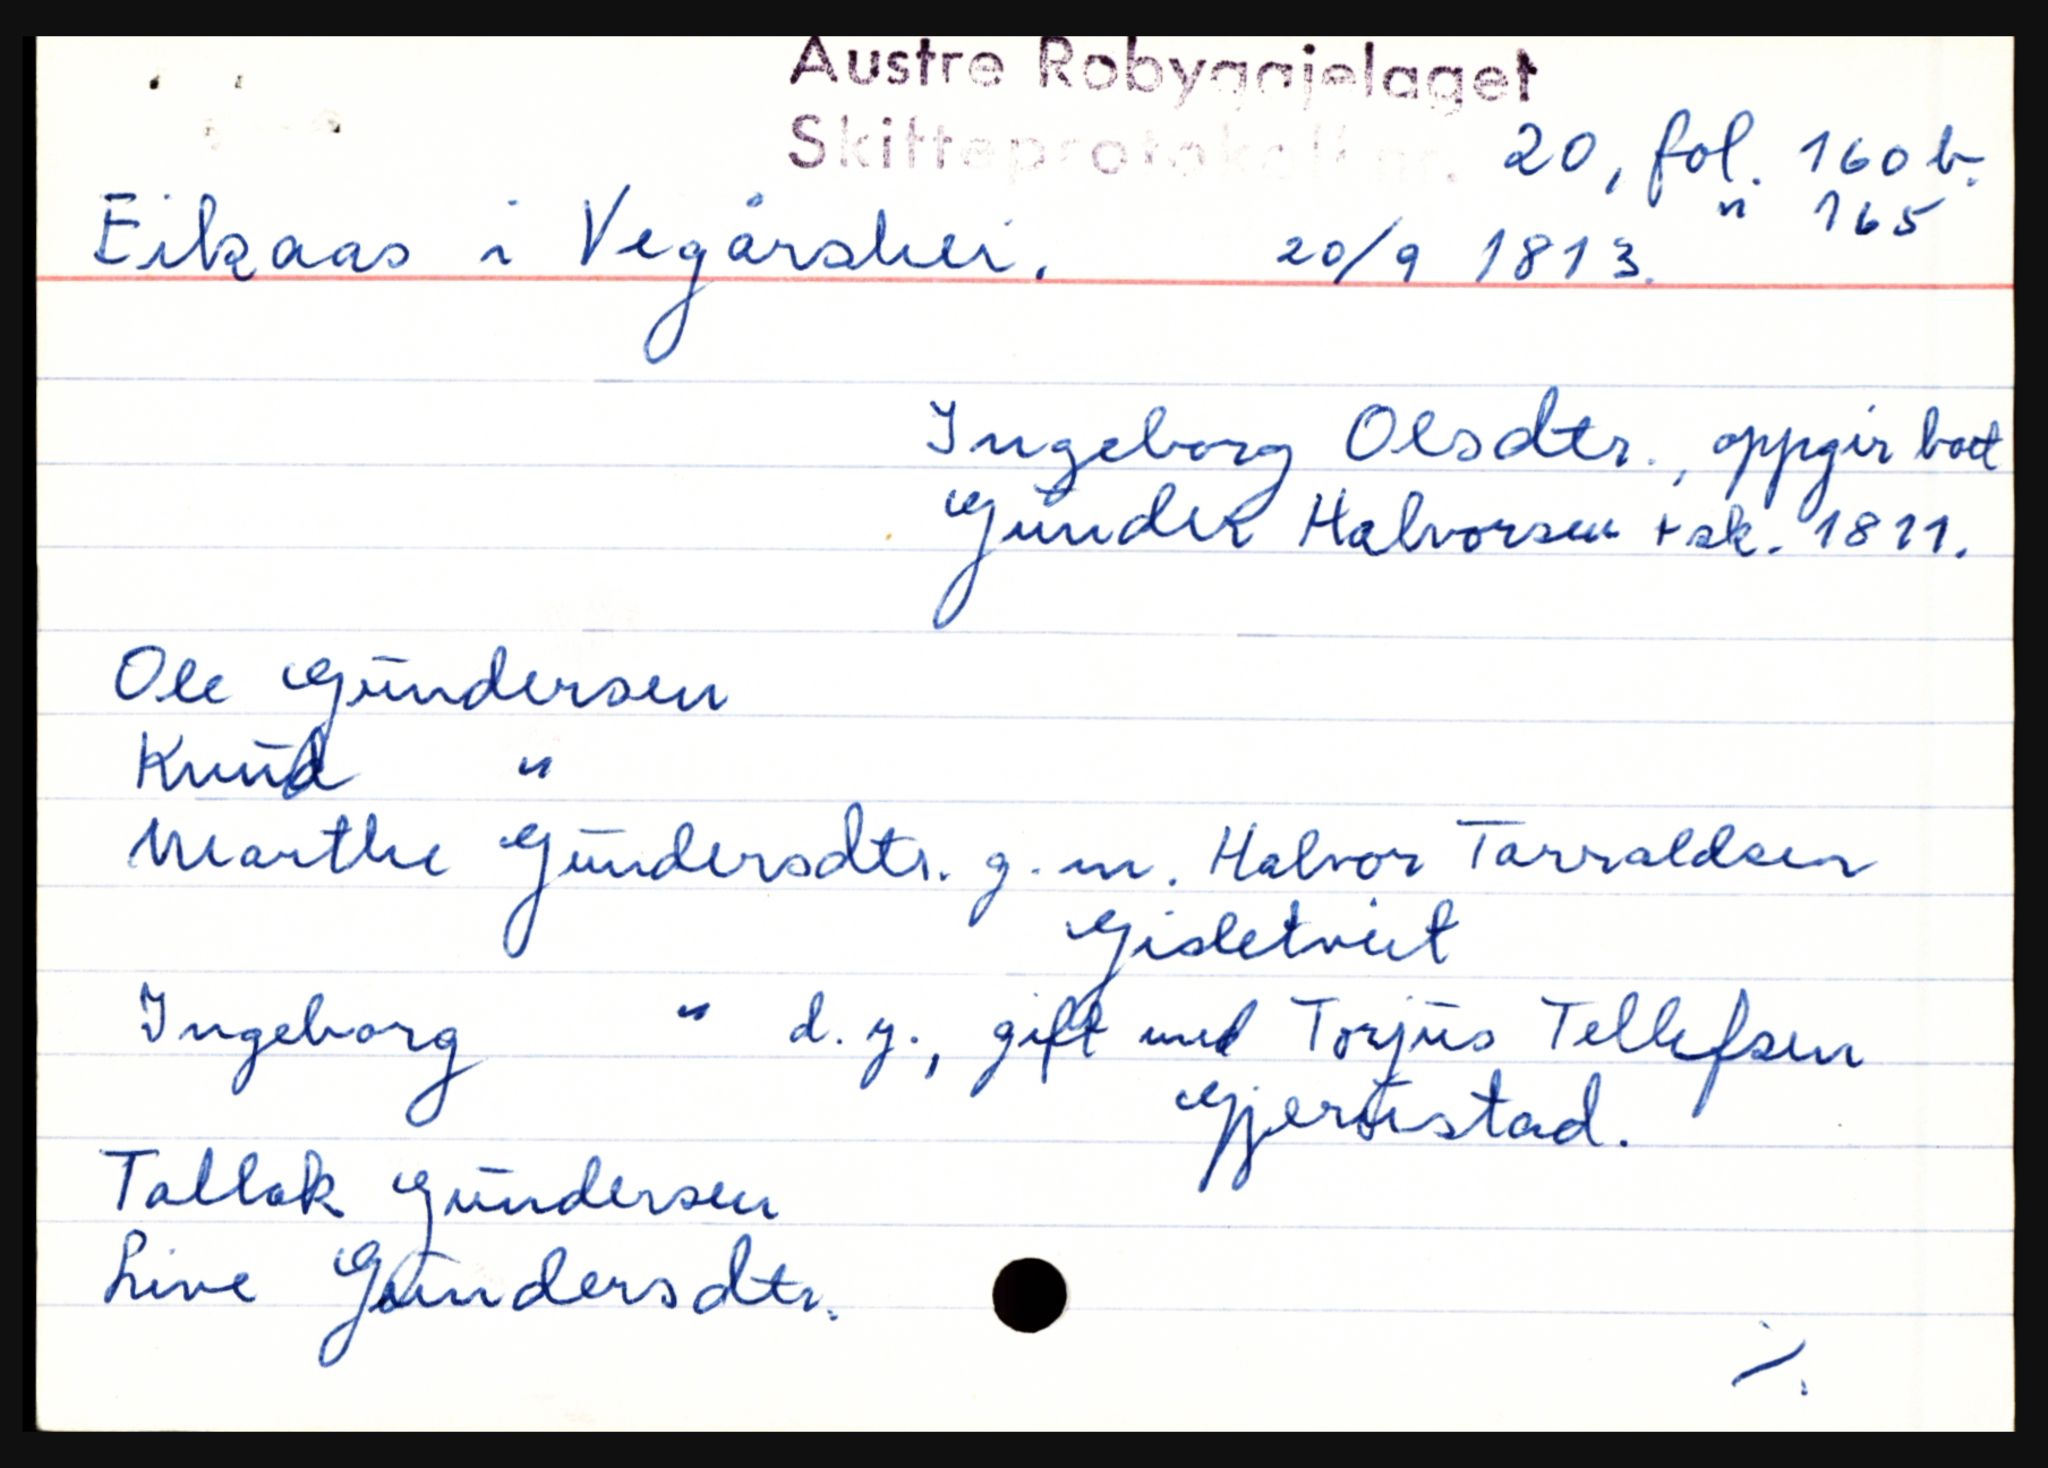 Austre Robyggjelaget
Skifteprotokoll nr. 20, fol. 160 b.
" 165
Eikaas i Vegårshei. 20/9 1813.
Ingeborg Olsdtr., oppgir boet
Gunder Halvorsen + sk. 1811.
Ole Gundersen
Knud "
Marthe Gundersdtr. g.m. Halvor Tarraldsen
Gisletveit
Ingeborg " d.y., gift med Torjus Tellefsen
Gjerustad.
Tallak Gundersen
Live Gundersdtr.
./.